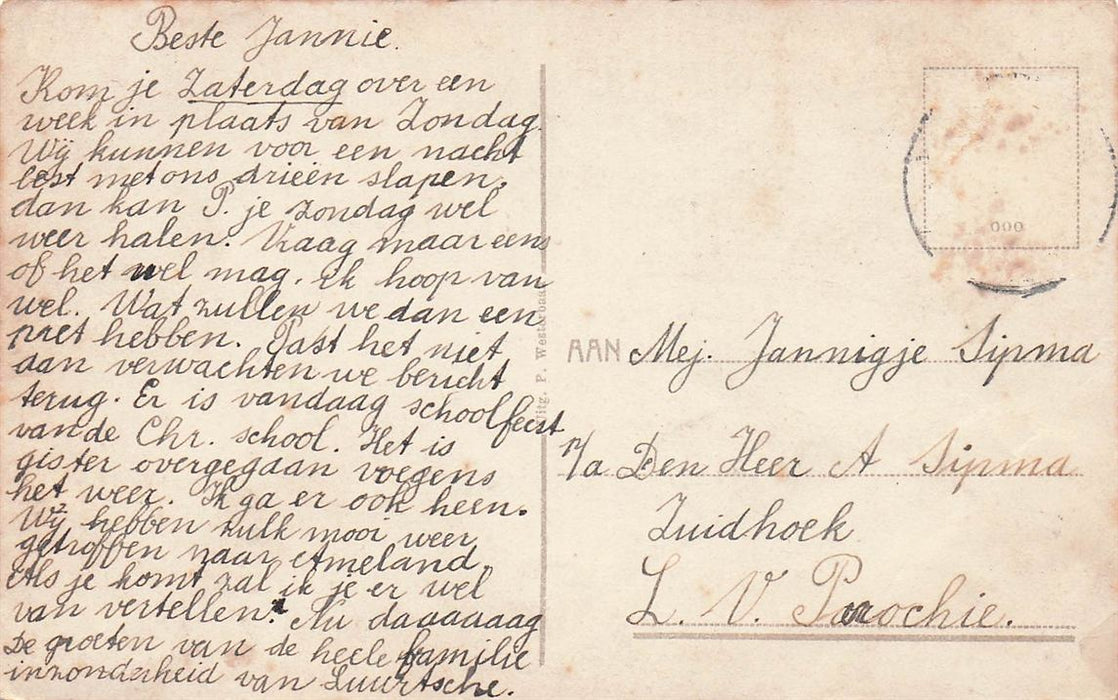 Beste Jannie.
Kom je Zaterdag over een
week in plaats van Zondag.
Wij kunnen voor een nacht
best met ons drieën slapen,
dan kan P. je zondag wel
weer halen. Vraag maar eens
of het wel mag. Ik hoop van
wel. Wat zullen we dan een
pret hebben. Past het niet
dan verwachten we bericht
terug. Er is vandaag schoolfeest
van de Chr. school. Het is
gister overgegaan voegens
het weer. Ik ga er ook heen.
Wij hebben zulk mooi weer
getroffen naar Ameland.
Als je komt zal ik je er wel
van vertellen. Nu daaaaaag
De groeten van de heele familie
inzonderheid van Luurtsche.
Uitg. P. Westerbaan
000
AAN Mej. Jannigje Sipma
p/a Den Heer A Sipma
Zuidhoek
L. V. Parochie.